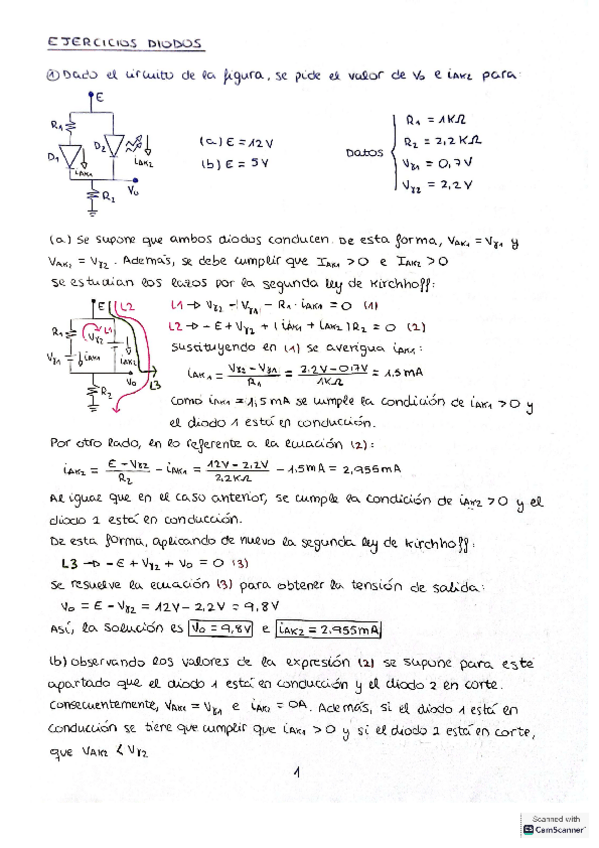 EJERCICIOS DIODOS
① Dado el circuito de la figura, se pide el valor de V₀ e iAK2 para:
E
R₁
D₁
D₂
iAK1
iAK2
V₀
R₂
(a) E = 12V
(b) E = 5V
DATOS
R₁ = 1KΩ
R₂ = 2,2KΩ
Vγ1 = 0,7V
Vγ2 = 2,2V
(a) Se supone que ambos diodos conducen. De esta forma, VAK1 = Vγ1 y
VAK2 = Vγ2. Además, se debe cumplir que IAK1 > 0 e IAK2 > 0
Se estudian los lazos por la segunda ley de Kirchhoff:
E
L2
L1
R₁
Vγ1
Vγ2
iAK1
iAK2
V₀
L3
R₂
L1 → Vγ2 - Vγ1 - R₁ · iAK1 = 0 (1)
L2 → - E + Vγ2 + (iAK1 + iAK2) R₂ = 0 (2)
Sustituyendo en (1) se averigua iAK1:
iAK1 = Vγ2 - Vγ1 / R₁ = 2,2V - 0,7V / 1KΩ = 1,5mA
Como iAK1 = 1,5mA se cumple la condición de iAK1 > 0 y
el diodo 1 está en conducción.
Por otro lado, en lo referente a la ecuación (2):
iAK2 = E - Vγ2 / R₂ - iAK1 = 12V - 2,2V / 2,2KΩ - 1,5mA = 2,955mA
Al igual que en el caso anterior, se cumple la condición de iAK2 > 0 y el
diodo 2 está en conducción.
De esta forma, aplicando de nuevo la segunda ley de Kirchhoff:
L3 → - E + Vγ2 + V₀ = 0 (3)
Se resuelve la ecuación (3) para obtener la tensión de salida:
V₀ = E - Vγ2 = 12V - 2,2V = 9,8V
Así, la solución es V₀ = 9,8V e iAK2 = 2,955mA
(b) Observando los valores de la expresión (2) se supone para este
apartado que el diodo 1 está en conducción y el diodo 2 en corte.
Consecuentemente, VAK1 = Vγ1 e iAK2 = 0A. Además, si el diodo 1 está en
conducción se tiene que cumplir que iAK1 > 0 y si el diodo 2 está en corte,
que VAK2 < Vγ2
1
Scanned with
CS CamScanner